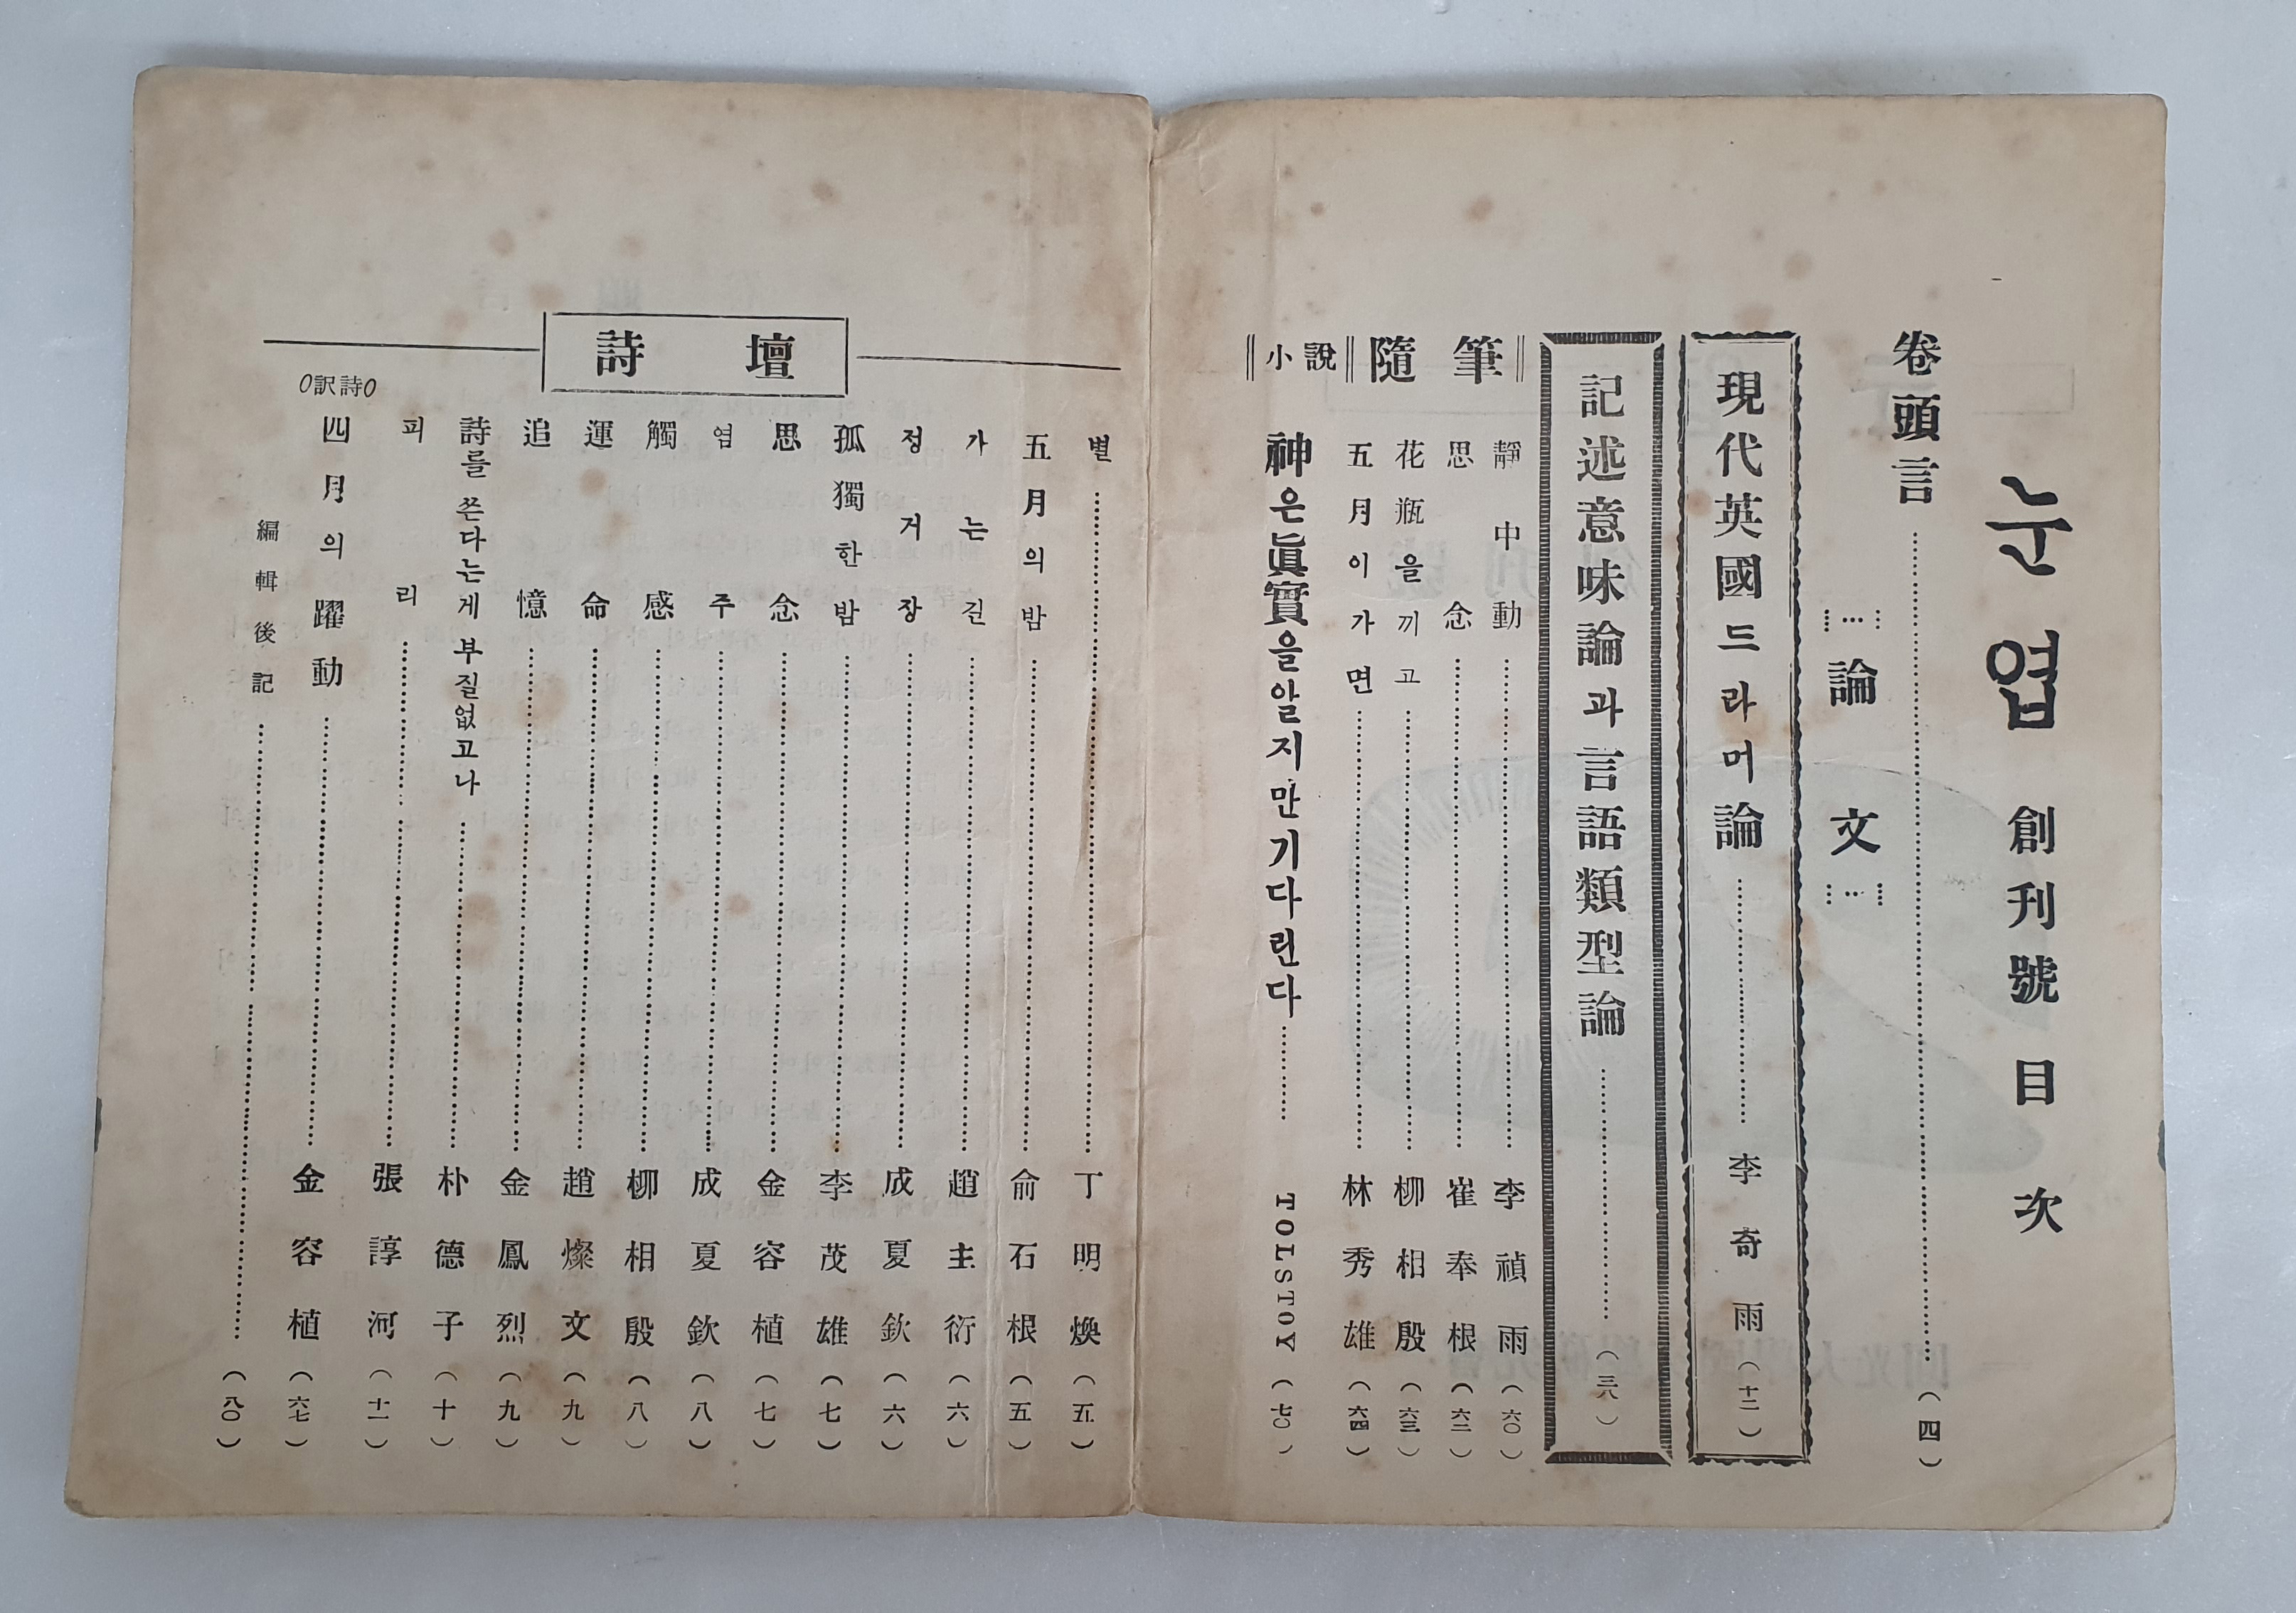 눈엽 創刊號 目次
卷頭言 (四)
論文
現代英國드라머論 李奇雨 (十二)
記述意味論과言語類型論 (三八)
隨筆
靜中動 李禎雨 (六〇)
思念 崔奉根 (六二)
花瓶을끼고 柳相殷 (六三)
五月이가면 林秀雄 (六四)
小說
神은眞實을알지만기다린다 TOLSTOY (七〇)
詩壇
별 丁明煥 (五)
五月의밤 俞石根 (五)
가는길 趙主衍 (六)
정거장 成夏欽 (六)
孤獨한밤 李茂雄 (七)
思念 金容植 (七)
염주 成夏欽 (八)
觸感 柳相殷 (八)
運命 趙燦文 (九)
追憶 金鳳烈 (九)
詩를 쓴다는게 부질없고나 朴德子 (十)
피리 張諄河 (十一)
訳詩
四月의躍動 金容植 (六七)
編輯後記 (八〇)